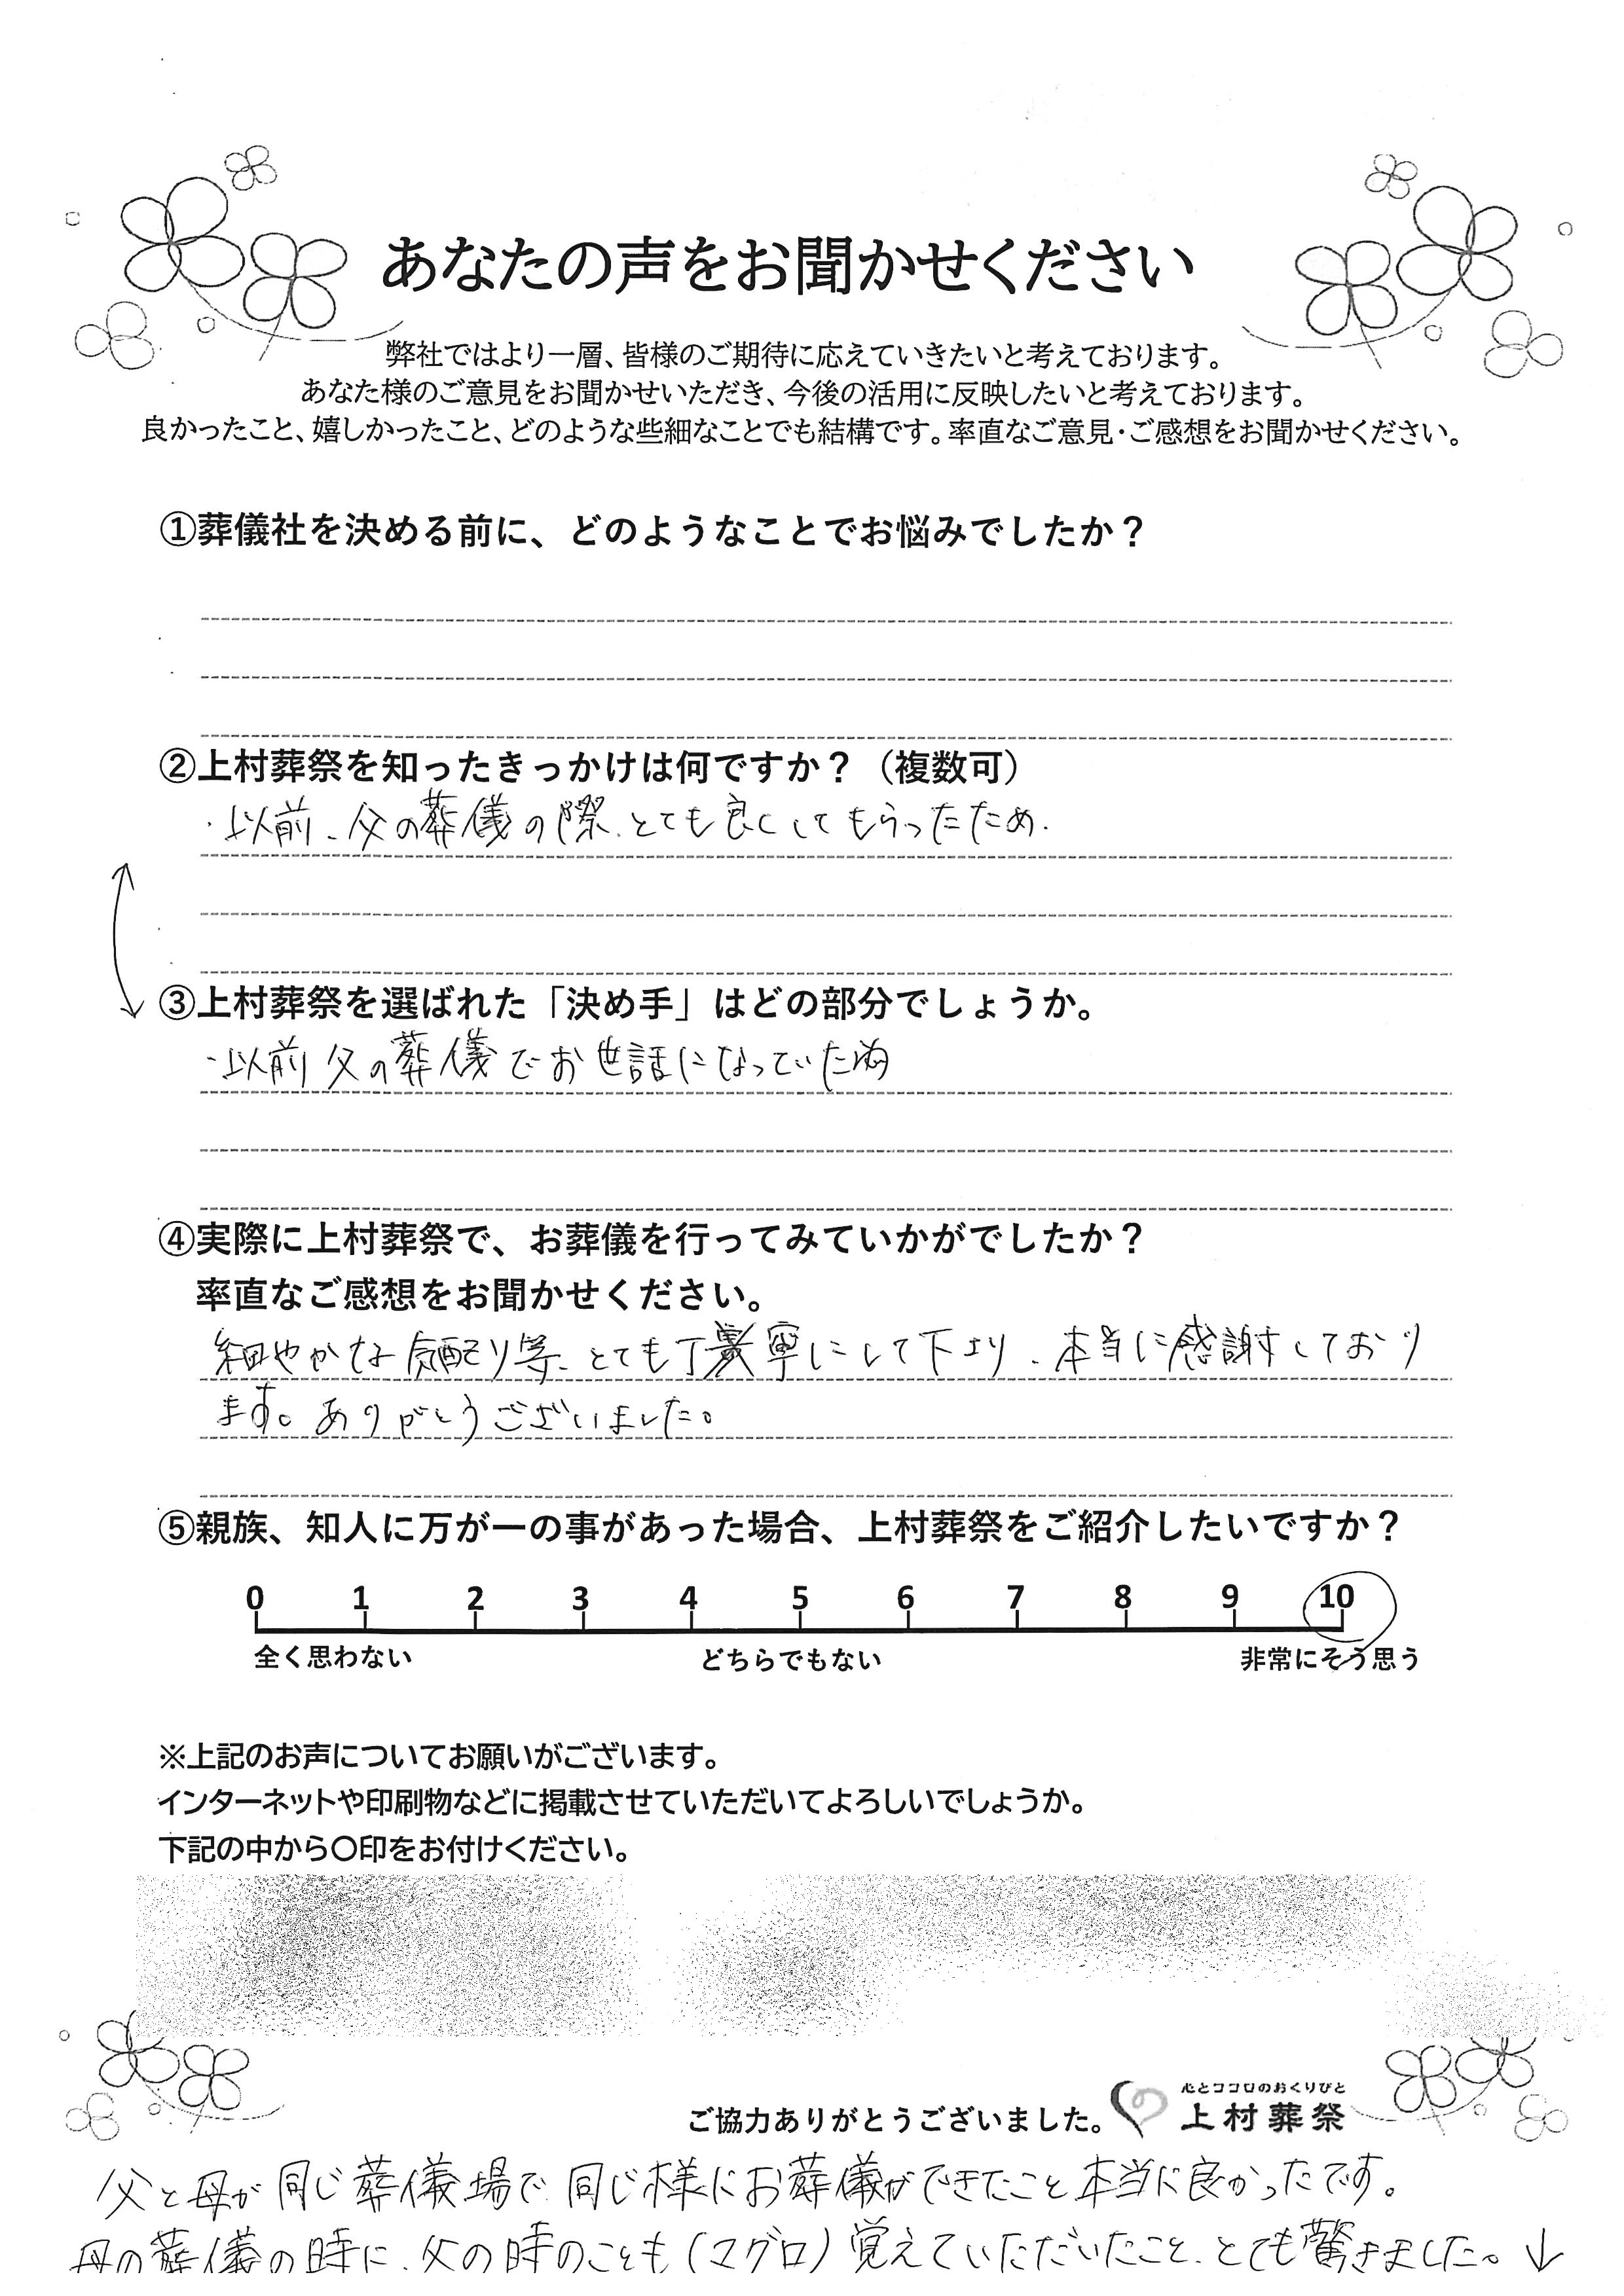 あなたの声をお聞かせください
弊社ではより一層、皆様のご期待に応えていきたいと考えております。
あなた様のご意見をお聞かせいただき、今後の活用に反映したいと考えております。
良かったこと、嬉しかったこと、どのような些細なことでも結構です。率直なご意見・ご感想をお聞かせください。
①葬儀社を決める前に、どのようなことでお悩みでしたか？
②上村葬祭を知ったきっかけは何ですか？（複数可）
・以前、父の葬儀の際、とても良くしてもらったため.
③上村葬祭を選ばれた「決め手」はどの部分でしょうか。
・以前父の葬儀でお世話になっていた為
④実際に上村葬祭で、お葬儀を行ってみていかがでしたか？
率直なご感想をお聞かせください。
細やかな気配り等、とても丁寧にして下さり、本当に感謝しており
ます。ありがとうございました。
⑤親族、知人に万が一の事があった場合、上村葬祭をご紹介したいですか？
0 1 2 3 4 5 6 7 8 9 10
全く思わない どちらでもない 非常にそう思う
※上記のお声についてお願いがございます。
インターネットや印刷物などに掲載させていただいてよろしいでしょうか。
下記の中から〇印をお付けください。
心とココロのおくりびと
ご協力ありがとうございました。 上村葬祭
父と母が同じ葬儀場で同じ様にお葬儀ができたこと本当に良かったです。
母の葬儀の時に、父の時のことも(マグロ)覚えていただいたこと、とても驚きました。↓